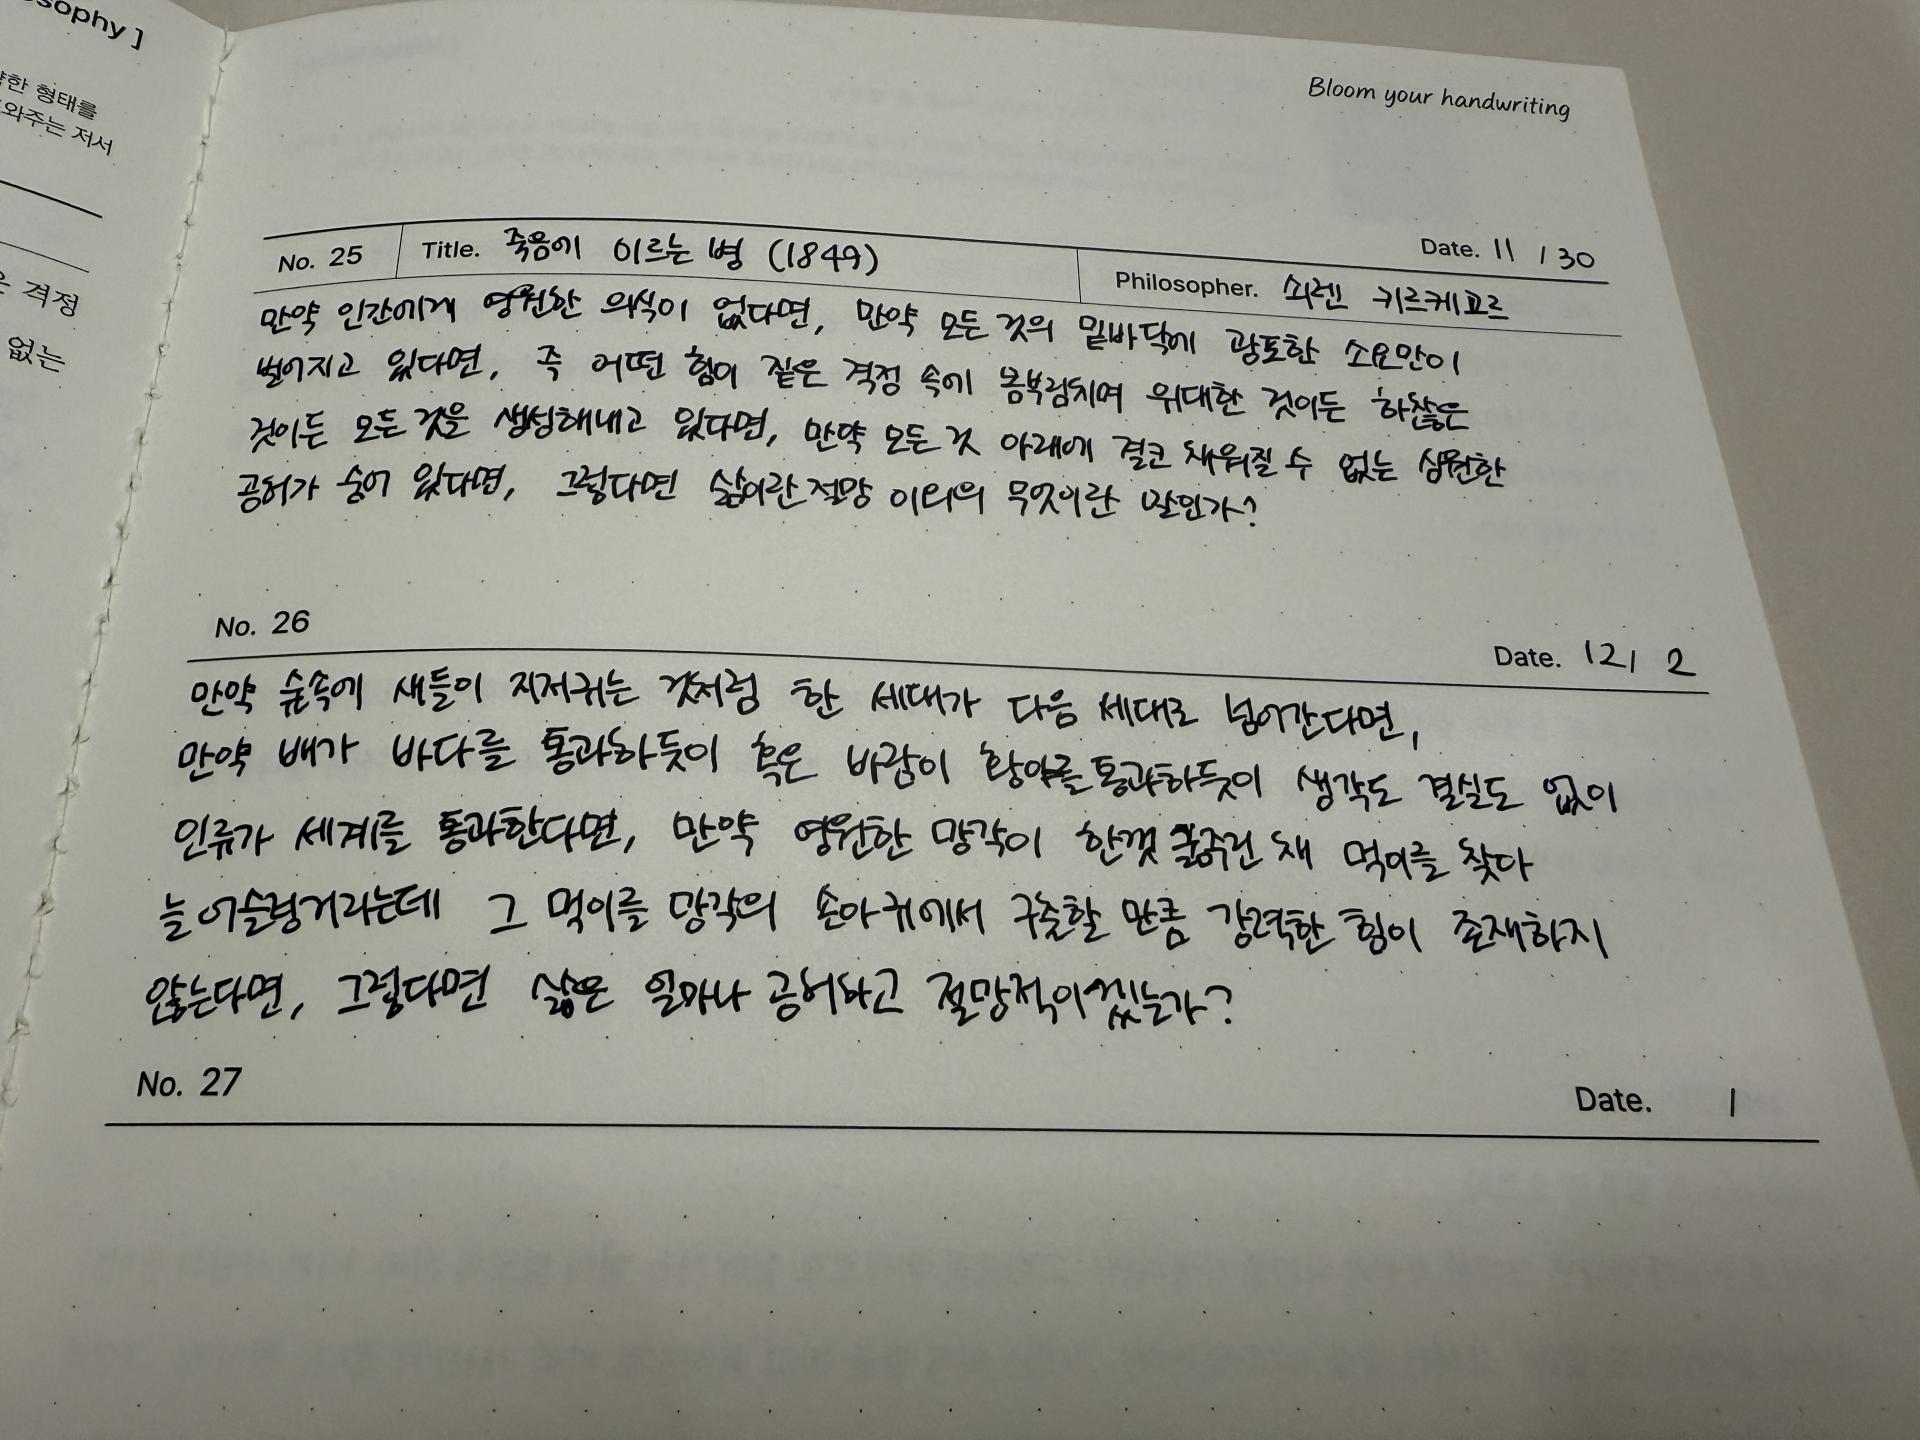 sophy ]
한 형태를
와주는 저서
격정
없는
Bloom your handwriting
Date. 11 / 30
No. 25 Title. 죽음에 이르는 병 (1849) Philosopher. 쇠렌 키르케고르
만약 인간에게 영원한 의식이 없다면, 만약 모든 것의 밑바닥에 광포한 소요만이
벌어지고 있다면, 즉 어떤 힘이 짙은 격정 속에 몸부림치며 위대한 것이든 하찮은
것이든 모든 것을 생성해내고 있다면, 만약 모든 것 아래에 결코 채워질 수 없는 심원한
공허가 숨어 있다면, 그렇다면 삶이란 절망 이외의 무엇이란 말인가?
No. 26 Date. 12 / 2
만약 숲속에 새들이 지저귀는 것처럼 한 세대가 다음 세대로 넘어간다면,
만약 배가 바다를 통과하듯이 혹은 바람이 황야를 통과하듯이 생각도 결실도 없이
인류가 세계를 통과한다면, 만약 영원한 망각이 한껏 굶주린 채 먹이를 찾아
늘 어슬렁거리는데 그 먹이를 망각의 손아귀에서 구출할 만큼 강력한 힘이 존재하지
않는다면, 그렇다면 삶은 얼마나 공허하고 절망적이겠는가?
No. 27 Date. /